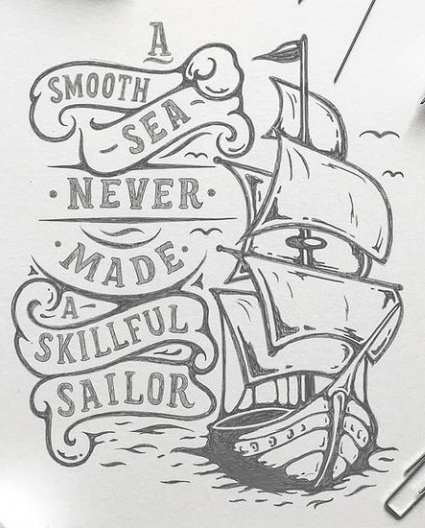 A
SMOOTH
SEA
NEVER
MADE
A
SKILLFUL
SAILOR